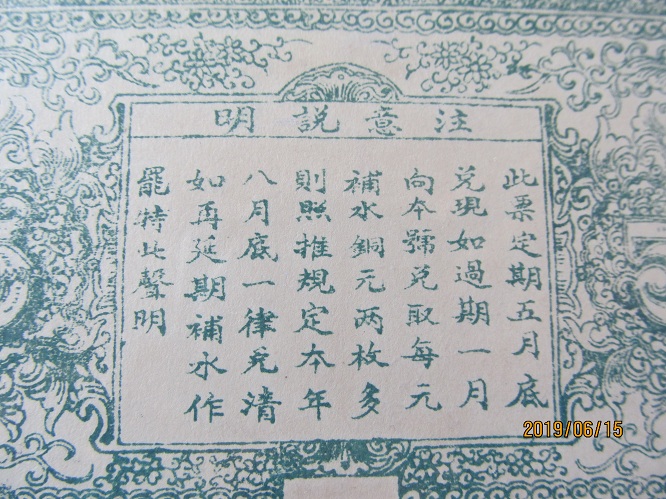 注意說明
此票定期五月底
兑現如過期一月
向本號兑取每元
補水銅元两枚多
則照推規定本年
八月底一律兑清
如再延期補水作
罷特此聲明
2019/06/15